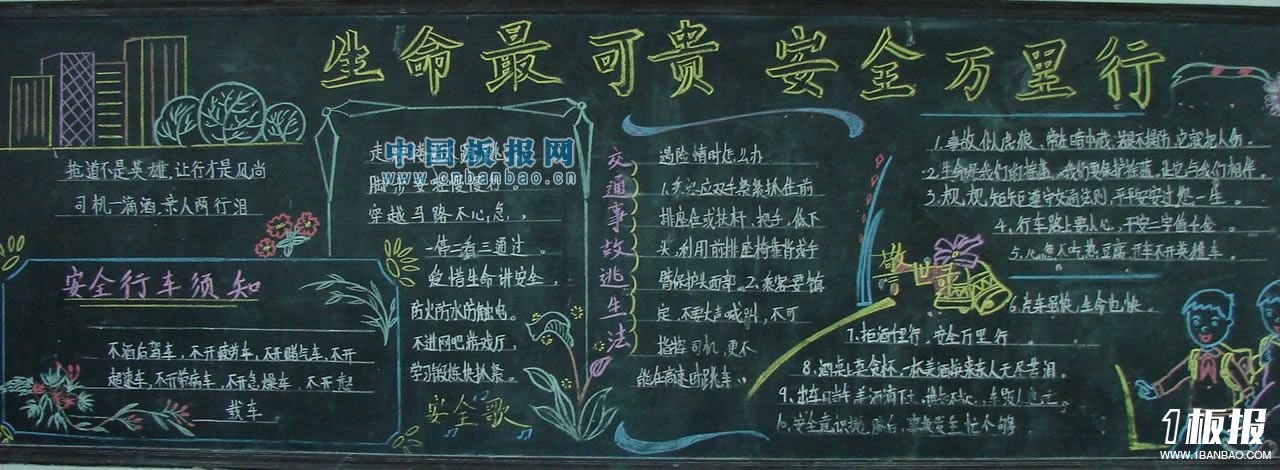 生命最可贵 安全万里行
抢道不是英雄,让行才是风尚
司机一滴酒,亲人两行泪
安全行车须知
不酒后驾车,不开疲劳车,不开赌气车,不开
超速车,不开带病车,不开急燥车,不开超
载车
中国板报网
www.cnbanbao.cn
脚步要慢慢行。
穿越马路不心急,
一停二看三通过。
爱惜生命讲安全,
防火防水防触电。
不进网吧游戏厅,
学习锻炼快抓紧。
安全歌
交通事故逃生法
遇险情时怎么办
1.应双手紧紧抓住前
排座位或扶杆、把手,低下
头,利用前排座椅靠背或手
臂保护头面部。2.乘客要镇
定,不要大声喊叫,不可
指挥司机,更不
能在高速时跳车。
警世
1.事故似虎狼,常在暗中藏,若是不提防,它就把人伤。
2.生命是我们的摇篮,我们要保护摇篮,让它与我们相伴。
3.规规矩矩遵守交通法则,平平安安过您一生。
4.行车路上要小心,平安二字值千金
5.心急不吃热豆腐,开车不开英雄车。
6.汽车虽快,生命也快。
7.拒酒千里行,安全万里行
8.酒桌上莫贪杯,一杯美酒换来亲人无尽苦泪。
9.出车日当午,美酒滴下土,
10.安全意识
1板报
WWW.1BANBAO.COM